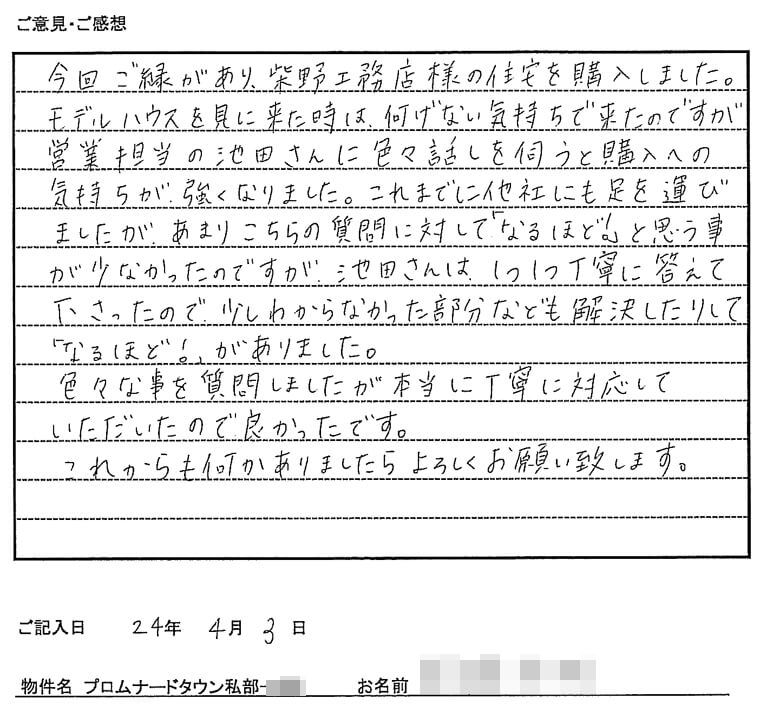 ご意見・ご感想
今回ご縁があり、柴野工務店様の住宅を購入しました。
モデルハウスを見に来た時は、何げない気持ちで来たのですが
営業担当の池田さんに色々話しを伺うと購入への
気持ちが、強くなりました。これまでに他社にも足を運び
ましたが、あまりこちらの質問に対して「なるほど!」と思う事
が少なかったのですが、池田さんは、1つ1つ丁寧に答えて
下さったので、少しわからなかった部分なども解決したりして
「なるほど!」がありました。
色々な事を質問しましたが本当に丁寧に対応して
いただいたので良かったです。
これからも何かありましたらよろしくお願い致します。
ご記入日 24年 4月 3日
物件名 プロムナードタウン私部 お名前